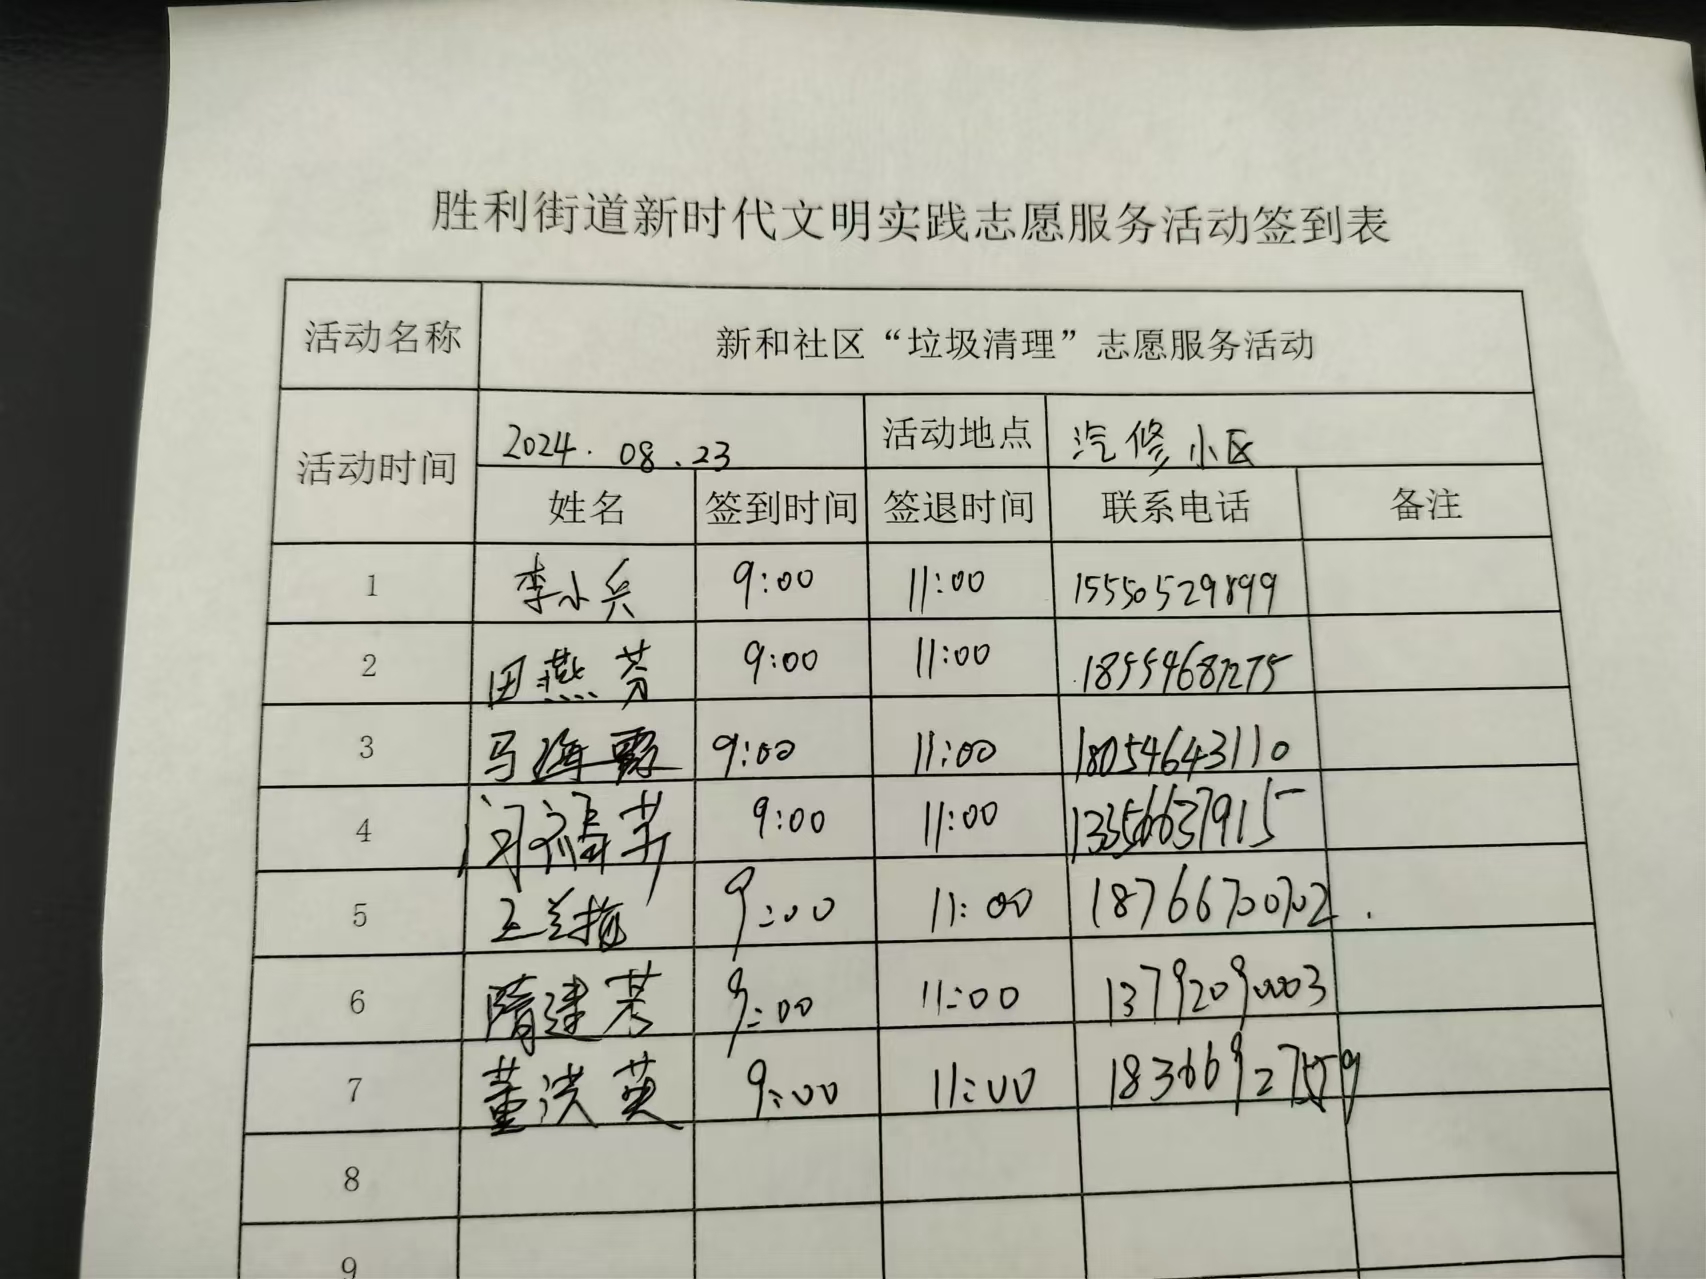 胜利街道新时代文明实践志愿服务活动签到表
活动名称 新和社区“垃圾清理”志愿服务活动
活动时间 2024.08.23 活动地点 汽修小区
姓名 签到时间 签退时间 联系电话 备注
1 李小兵 9:00 11:00 15550529899
2 田燕芬 9:00 11:00 18554687275
3 马海霞 9:00 11:00 18054643110
4 9:00 11:00 13356637915
5 王兰梅 9:00 11:00 18766700702.
6 隋建芳 9:00 11:00 13792090003
7 董洪英 9:00 11:00 18366927559
8
9